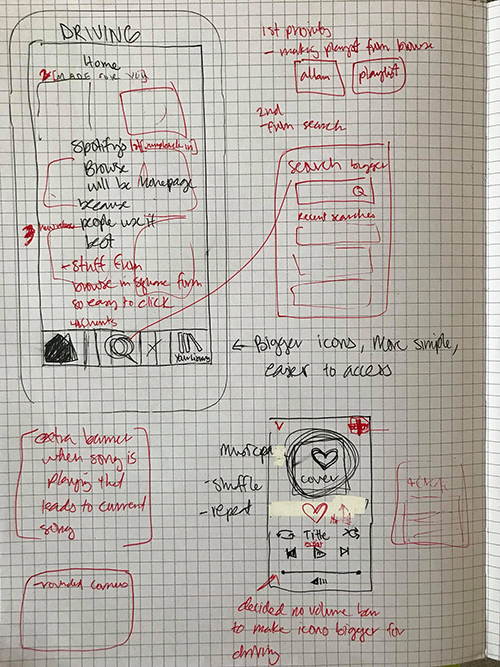 DRIVING
Home
MADE FOR YOU
Spotify's
Browse
will be Homepage
because
people use it
best
- stuff from
browse in square form
so easy to click
Your Library
← Bigger icons, More simple,
easier to access
1st priority
- making playlist from browse
playlist
2nd
- from search
search bigger
recent searches
extra banner
when song is
playing that
leads to current
song
- rounded corners
- shuffle
- repeat
cover
Title
decided no volume bar
to make icons bigger for
driving